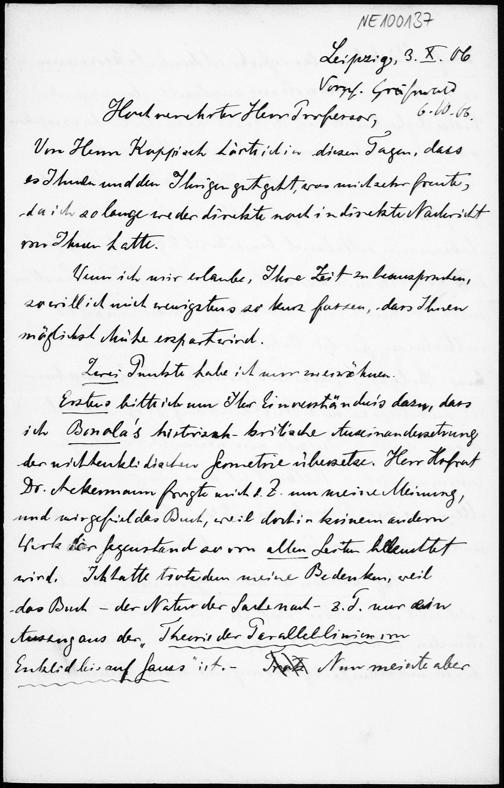 NE100137
Leipzig, 3. X. 06
Greifswald
6.10.06.
Hochverehrter Herr Professor,
Von Herrn Koppisch hörte ich in diesen Tagen, dass
es Ihnen und den Ihrigen gut geht, was mich sehr freute,
da ich so lange weder direkte noch indirekte Nachricht
von Ihnen hatte.
Wenn ich mir erlaube, Ihre Zeit zu beanspruchen,
so will ich mich wenigstens so kurz fassen, dass Ihnen
möglichst Mühe erspart wird.
Zwei Punkte habe ich nur zu erwähnen.
Erstens bitte ich um Ihr Einverständnis dazu, dass
ich Bonola's historisch-kritische Auseinandersetzung
der nichteuklidischen Geometrie übersetze. Herr Hofrat
Dr. Ackermann fragte mich s. Z. um meine Meinung,
und mir gefiel das Buch, weil doch in keinem andern
Werk der Gegenstand so von allen Seiten beleuchtet
wird. Ich hatte trotzdem meine Bedenken, weil
das Buch – der Natur der Sache nach – z. T. nur ein
Auszug aus der „Theorie der Parallellinien von
Euklid bis auf Gauss" ist. – Nun meinte aber